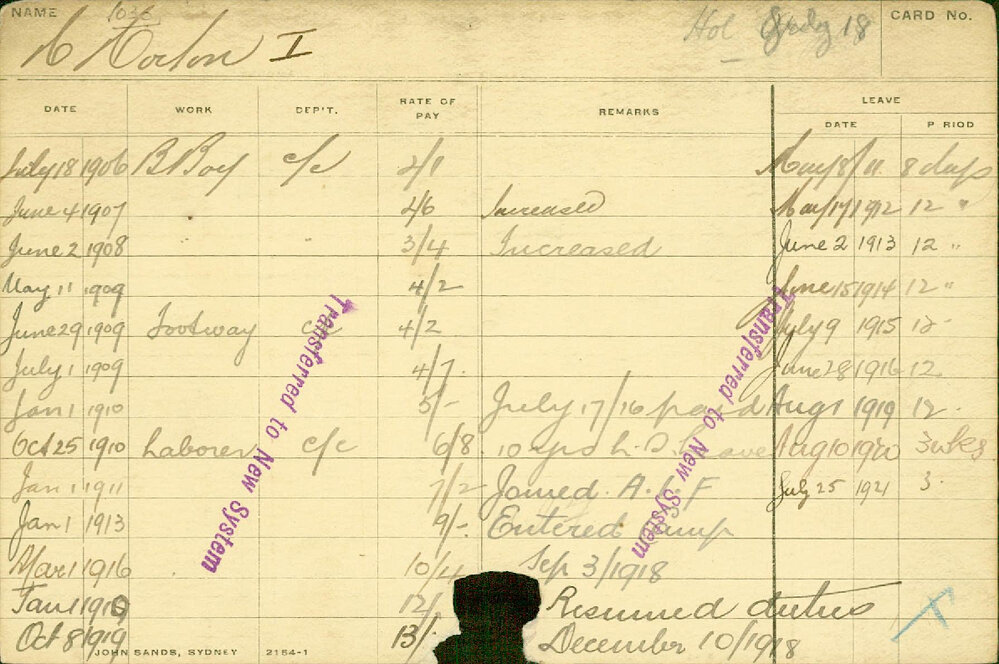 NAME 1036 Hol July 18 CARD No.
A Horton I
DATE WORK DEP'T. RATE OF PAY REMARKS LEAVE
DATE PRIOD
July 18 1906 B Boy c/c 2/1 May 8/11. 8 days
June 4 1907 2/6 Increased May 17/1912 12 "
June 2 1908 3/4 Increased June 2 1913 12 "
May 11 1909 4/2 June 15 1914 12 "
June 29 1909 Footway cc 4/2 July 9 1915 12
July 1 1909 4/7. June 28 1916 12
Jan 1 1910 5/- July 17/16 paid Aug 1 1919 12.
Oct 25 1910 Laborer c/c 6/8 10 yrs L.S. Leave Aug 10 1920 3 wks
Jan 1 1911 7/2 Joined A.I.F July 25 1921 3.
Jan 1 1913 9/- Entered Camp
Mar 1 1916 10/4 Sep 3/1918
Jan 1 1919 12/ Resumed duties T
Oct 8 1919 13/- December 10/1918
JOHN SANDS, SYDNEY 2154-1
Transferred to New System
Transferred to New System